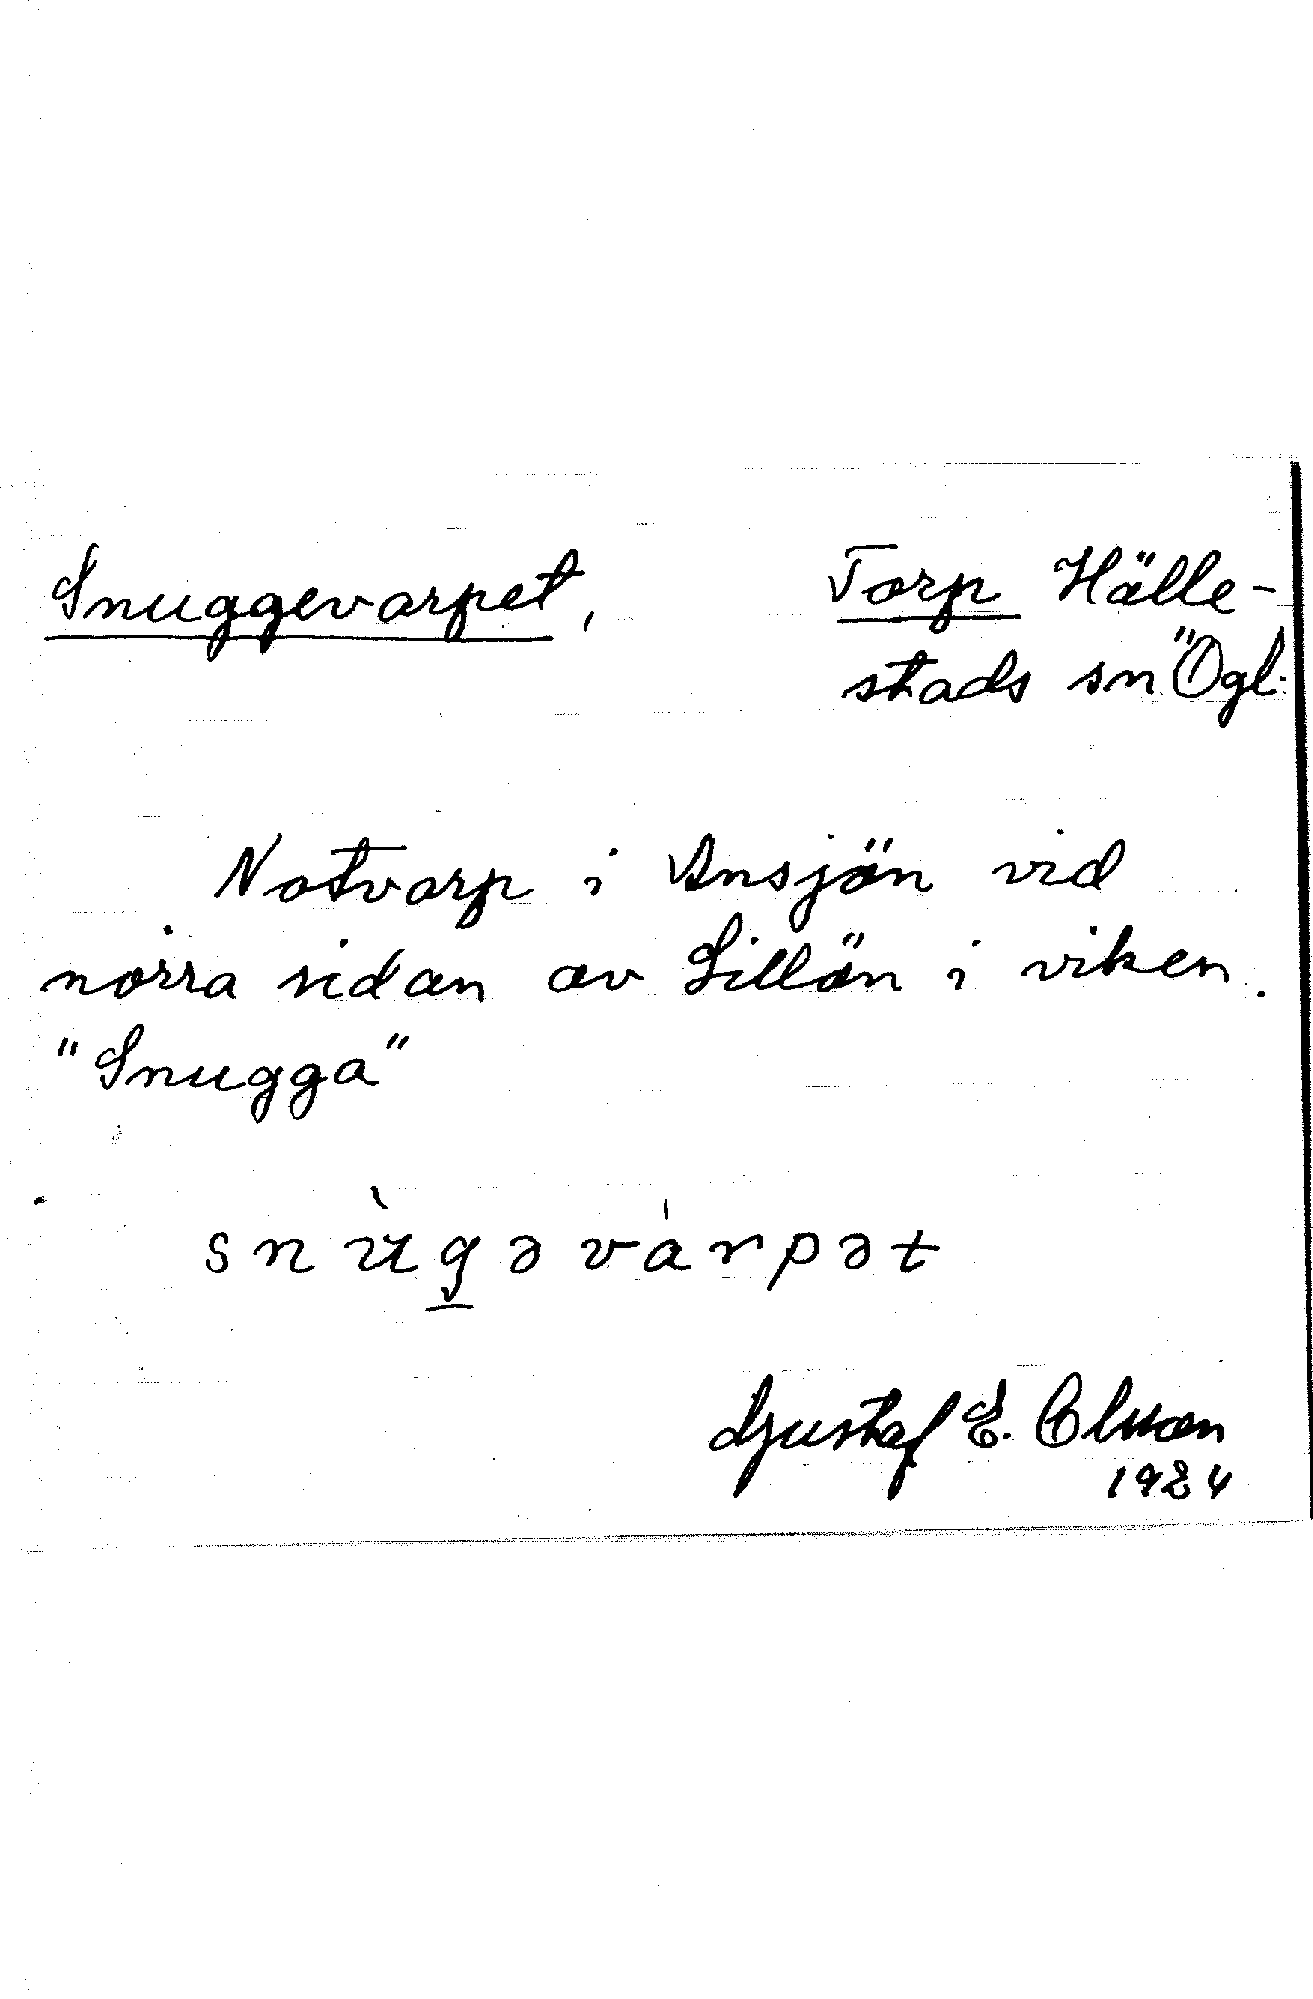 Snuggevarpet, Torp Hälle-
stads sn Ögl.
Notvarp i Ansjön vid
norra sidan av Lillön i viken.
"Snugga"
snùgəvárpət
Gustaf E. Olsson
1924